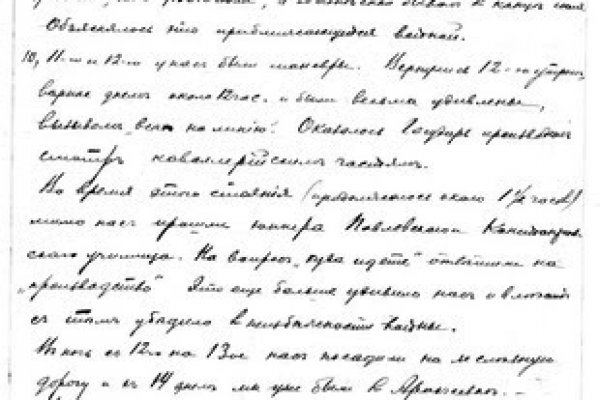 Объяснялось это приближающейся войной.
10, 11-го и 12-го у нас были маневры. Вернулись 12-го утром,
вернее днем около 12 час. и были весьма удивлены,
вызовом "всем на линию". Оказалось Государь производил
смотр кавалерийским частям.
Во время этого стояния (продолжалось около 1½ часов)
мимо нас прошли юнкера Павловского
ского училища. На вопрос "куда идете" ответили на
"производство" Это еще больше удивило нас и
с тем убедило в неизбежности войны.
В ночь с 12го на 13ое нас посадили на железную
дорогу и 14 днем мы уже были в